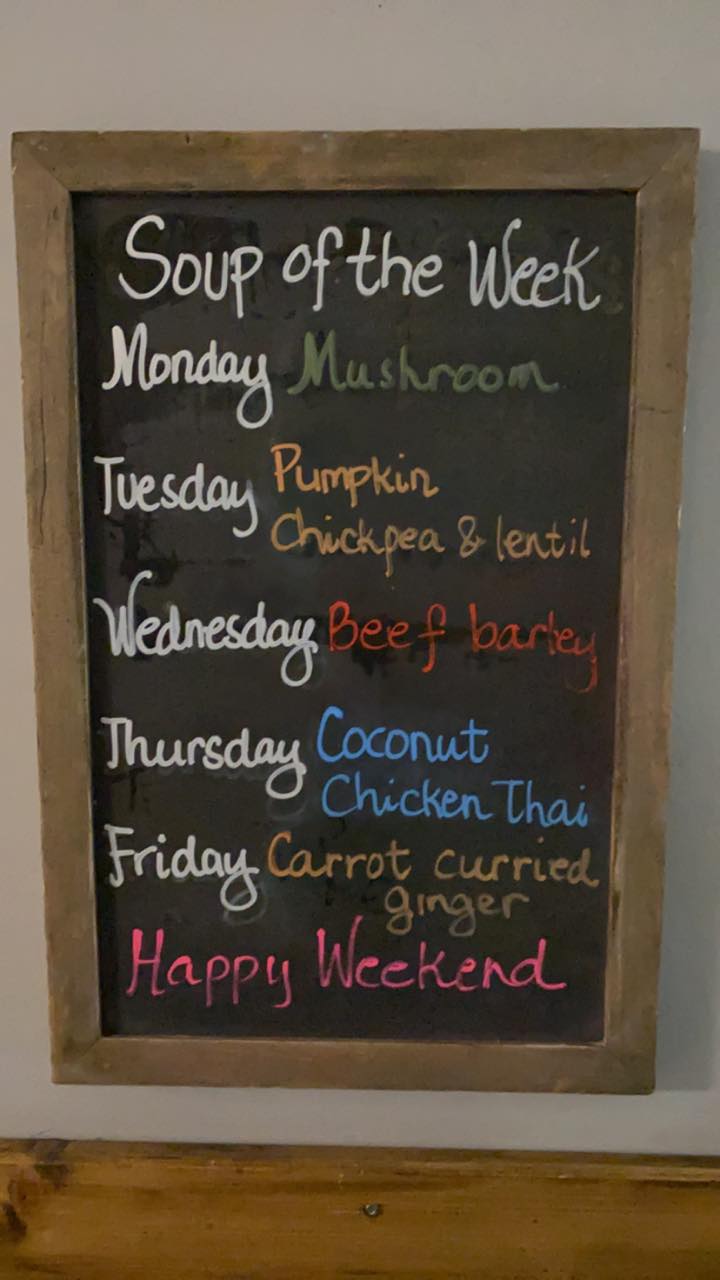 Soup of the Week
Monday Mushroom
Tuesday Pumpkin
Chickpea & lentil
Wednesday Beef barley
Thursday Coconut
Chicken Thai
Friday Carrot curried
ginger
Happy Weekend